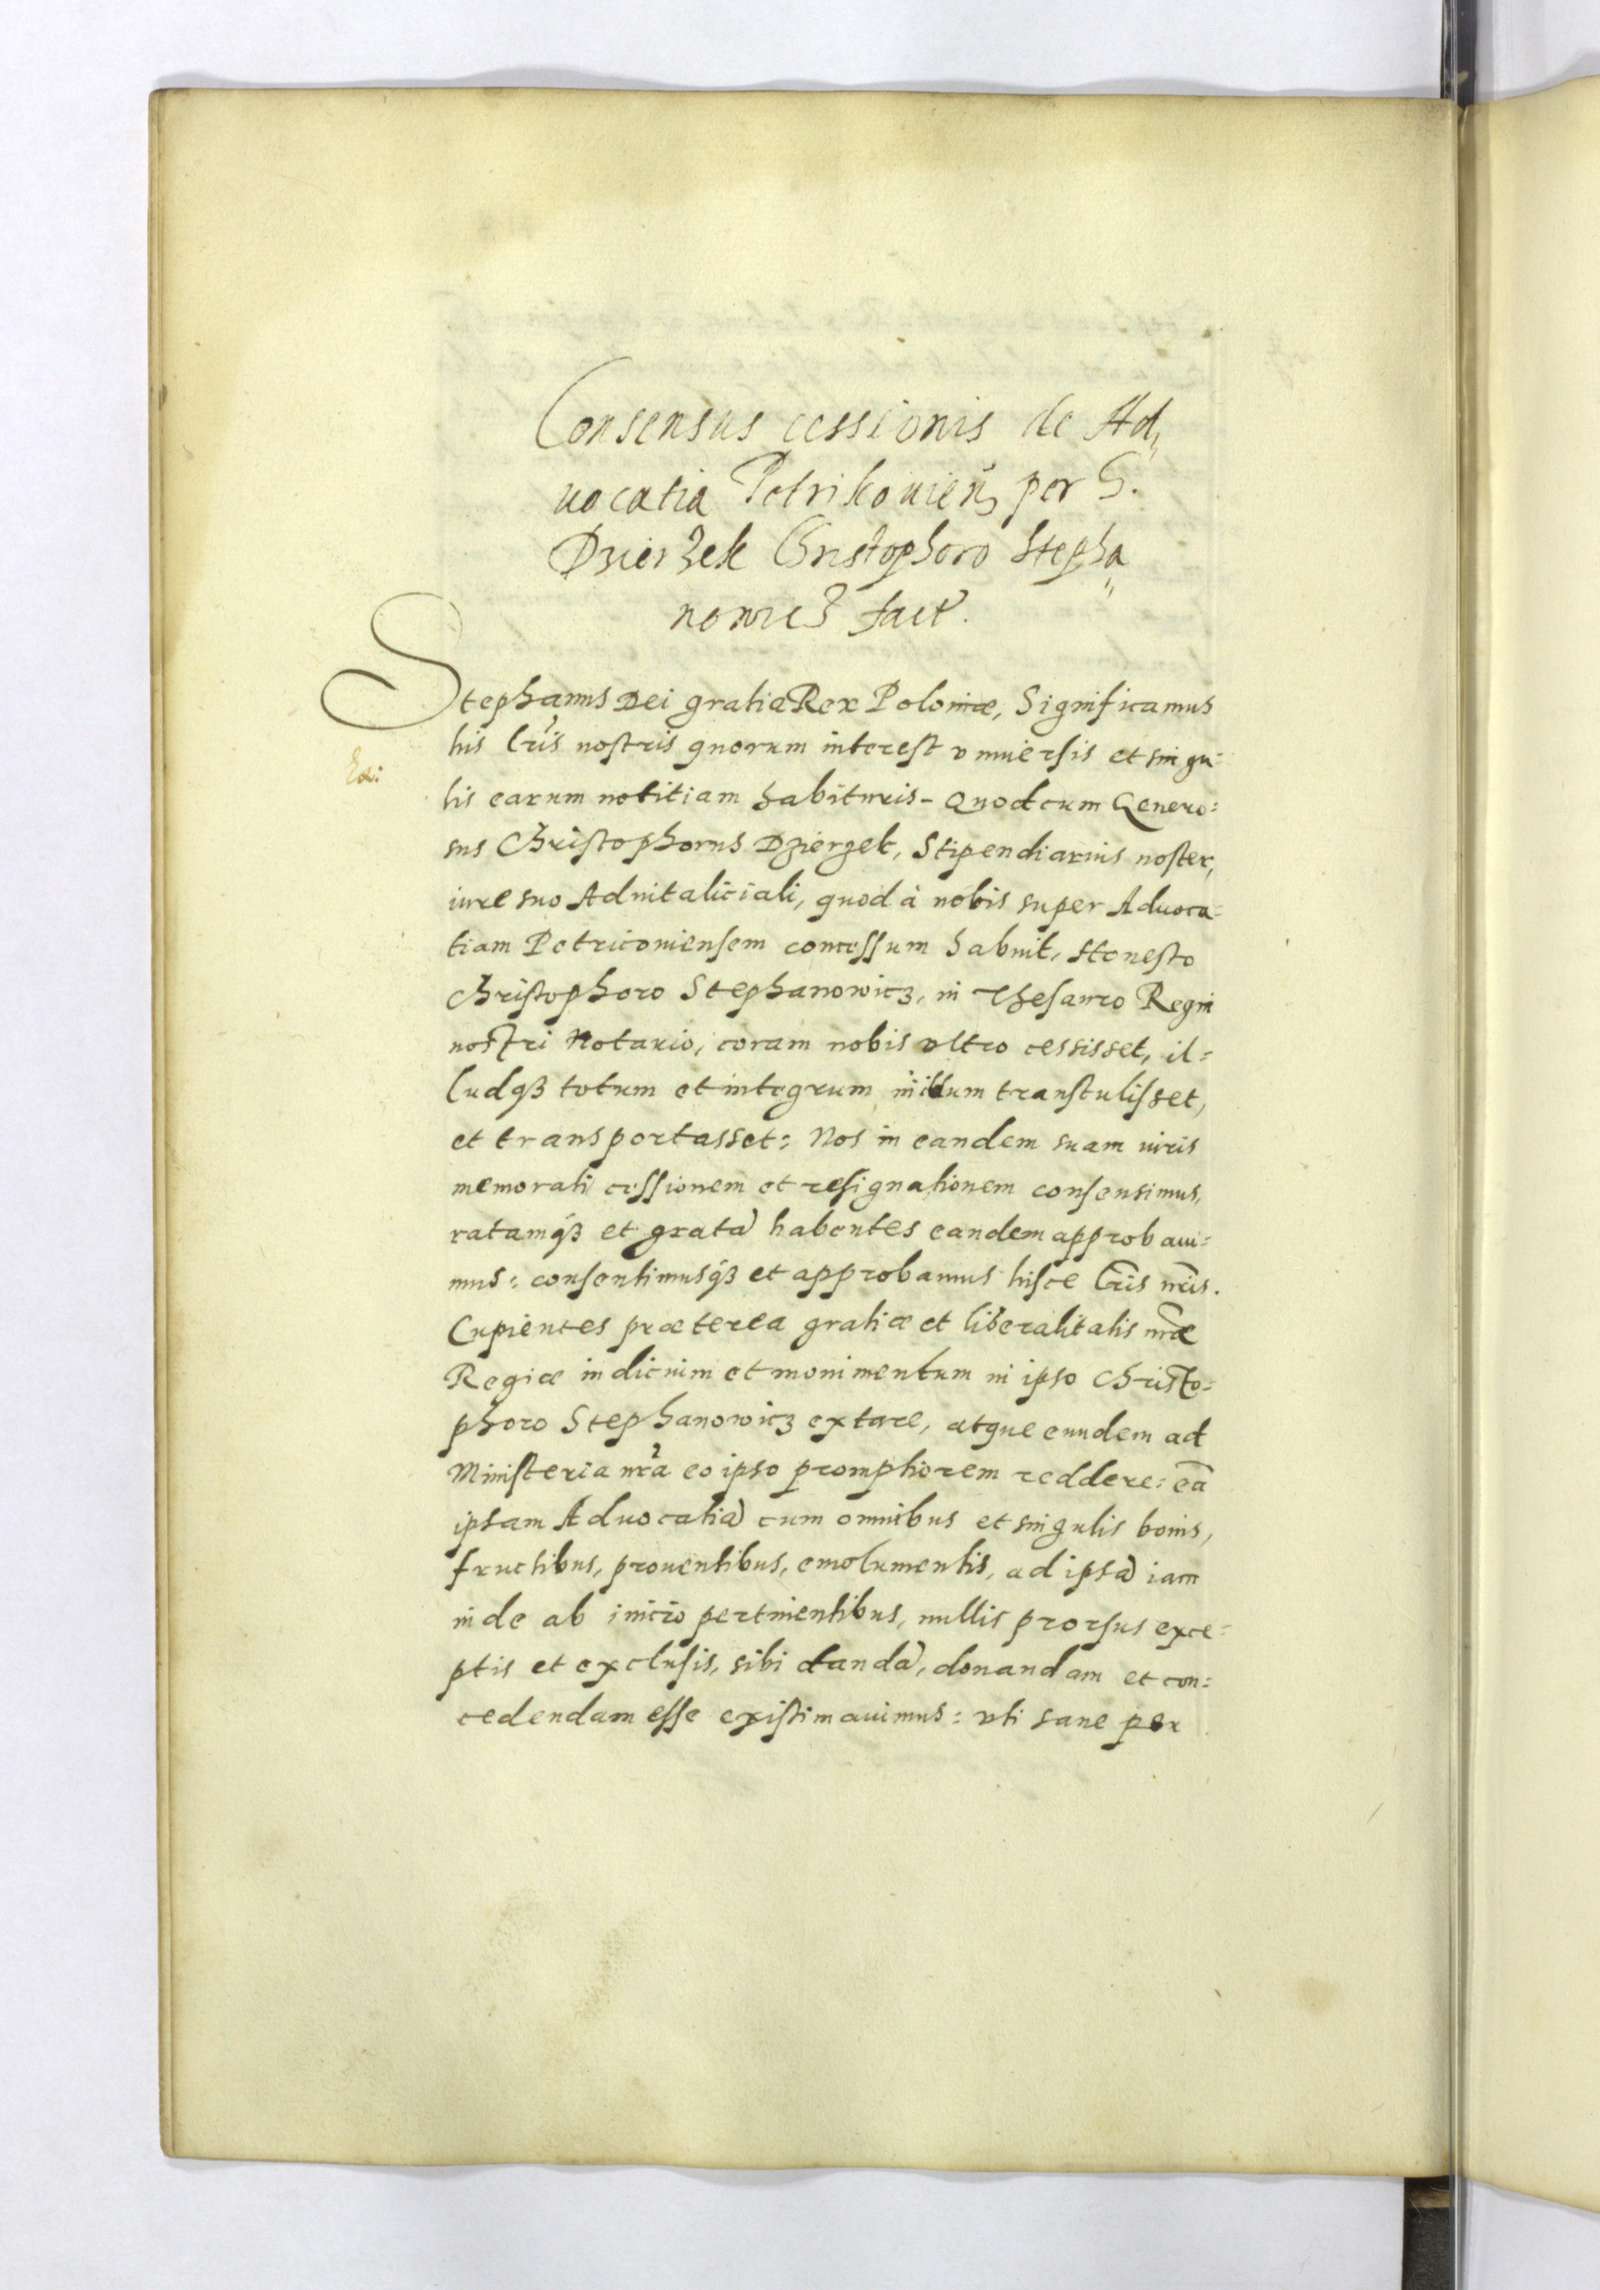 Consensus cessionis de Ad„
uocatia Petrikouien̄ per G.
Dzierzek Christophoro Stepha„
nowicz fact.
Stephanus Dei gratia Rex Poloniæ, Significamus
his lr̃is nostris quorum interest vniuersis et singu=
lis earum notitiam habituris – Quod cum Genero=
sus Christophorus Dzierzek, Stipendiarius noster,
iure suo Aduitaliciali, quod à nobis super Aduoca=
tiam Petricouiensem concessum habuit, Honesto
Christophoro Stephanowicz, in Thesauro Regni
nostri Notario, coram nobis vltro cessisset, il=
ludqꝫ totum et integrum in illum transtulisset,
et transportasset: Nos in eandem suam iuris
memorati cessionem et resignationem consensimus,
ratamqꝫ et gratã habentes eandem approbaui=
mus: consentimusqꝫ et approbamus hisce lr̃is nr̃is.
Cupientes præterea gratiæ et liberalitatis nr̃æ
Regiæ indicium et monimentum in ipso Christo=
phoro Stephanowicz extare, atque eundem ad
Ministeria nr̃a eo ipso promptiorem reddere: eã
ipsam Aduocatiã cum omnibus et singulis bonis,
fructibus, prouentibus, emolumentis, ad ipsã iam
inde ab initio pertinentibus, nullis prorsus exce=
ptis et exclusis, sibi dandã, donandam et con=
cedendam esse existimauimus: vti sane per